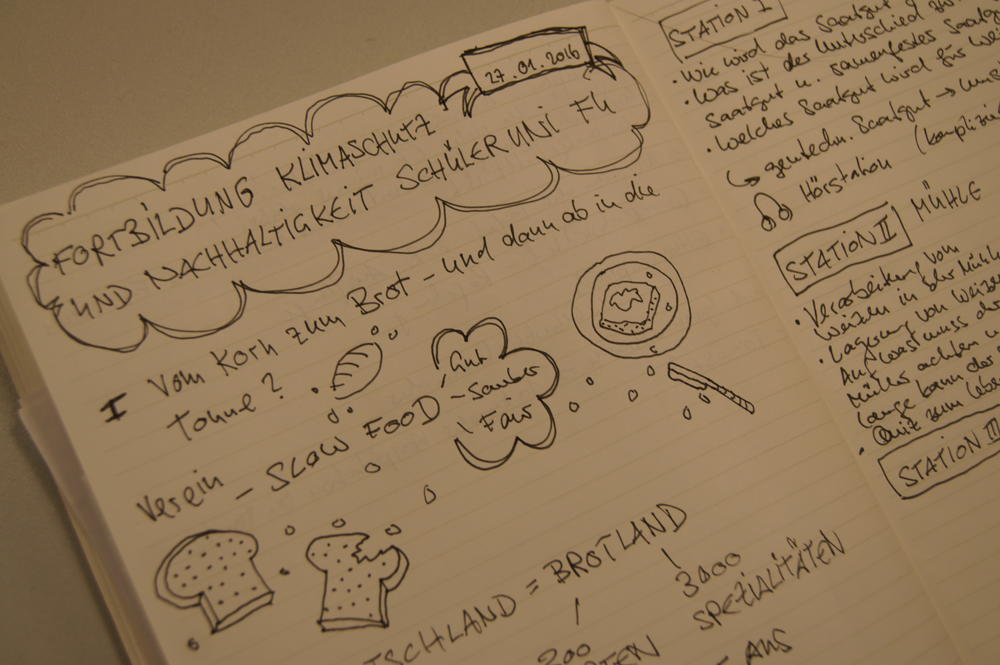 27.01.2016
FORTBILDUNG KLIMASCHUTZ
UND NACHHALTIGKEIT SCHÜLERUNI FU
I Vom Korn zum Brot - und dann ab in die
Tonne?
Verein - SLOW FOOD
Gut
- Sauber
\ Fair
TSCHLAND = BROTLAND
3000
SPEZIALITÄTEN
200
TEN
AUS
STATION I
• Wie wird das Saatgut
• Was ist der Unterschied
Saatgut u. samenfestes Saatgut
• welches Saatgut wird für
gentechn. Saatgut →
Hörstation
STATION II MÜHLE
• Verarbeitung vom
Weizen in der Mühle
• Lagerung von Weizen
Auf was muss der
Müller achten
lange kann der
• Quiz zum
STATION III